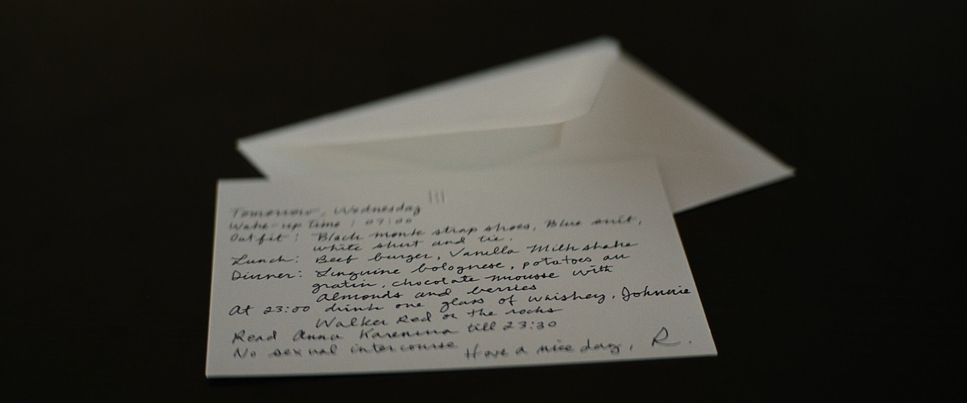 Tomorrow, Wednesday
Wake-up time : 07:00
Outfit : Black monk strap shoes, Blue suit,
white shirt and tie.
Lunch: Beef burger, Vanilla Milkshake
Dinner: Linguine bolognese, potatoes au
gratin, chocolate mousse with
almonds and berries
At 23:00 drink one glass of whiskey, Johnnie
Walker Red on the rocks
Read Anna Karenina till 23:30
No sexual intercourse
Have a nice day, R.